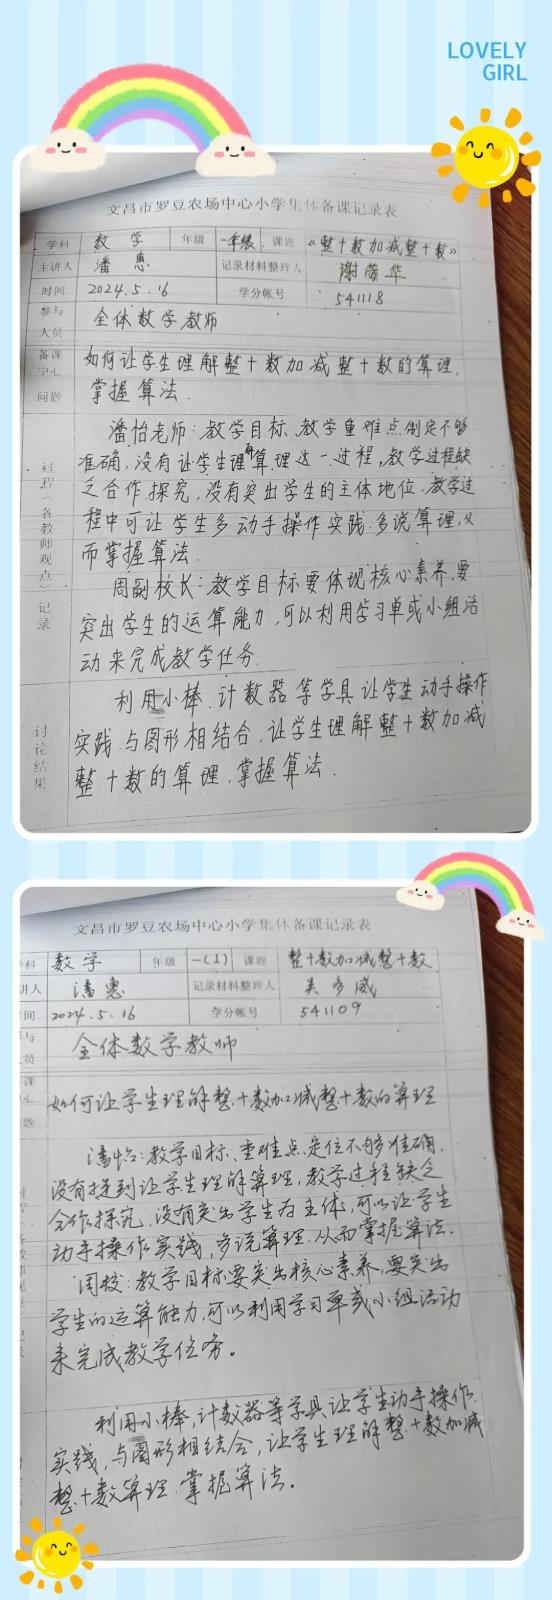 LOVELY
GIRL
文昌市罗豆农场中心小学集体备课记录表
学科 数学 年级 一年级 课题 《整十数加减整十数》
主讲人 潘惠 记录材料整理人 谢蒂华
时间 2024.5.16 学分帐号 541118
参与人员 全体数学教师
备课中心问题 如何让学生理解整十数加减整十数的算理,
掌握算法.
过程(各教师观点)记录
潘怡老师:教学目标、教学重难点制定不够
准确,没有让学生理解算理这一过程,教学过程缺
乏合作探究,没有突出学生的主体地位.教学过
程中可让学生多动手操作实践.多说算理,从
而掌握算法.
周副校长:教学目标要体现核心素养,要
突出学生的运算能力,可以利用学习单或小组活
动来完成教学任务.
讨论结果
利用小棒.计数器等学具让学生动手操作
实践.与图形相结合,让学生理解整十数加减
整十数的算理,掌握算法.
文昌市罗豆农场中心小学集体备课记录表
学科 数学 年级 一(1) 课题 整十数加减整十数
讲人 潘惠 记录材料整理人 吴多威
间 2024.5.16 学分帐号 541109
全体数学教师
如何让学生理解整十数加减整十数的算理
潘怡:教学目标、重难点定位不够准确.
没有提到让学生理解算理,教学过程缺乏
合作探究,没有突出学生为主体,可以让学生
动手操作实践,多说算理.从而掌握算法.
周校:教学目标要突出核心素养,要突出
学生的运算能力,可以利用学习单或小组活动
来完成教学任务。
利用小棒,计数器等学具让学生动手操作
实践,与图形相结合,让学生理解整十数加减
整十数算理.掌握算法。